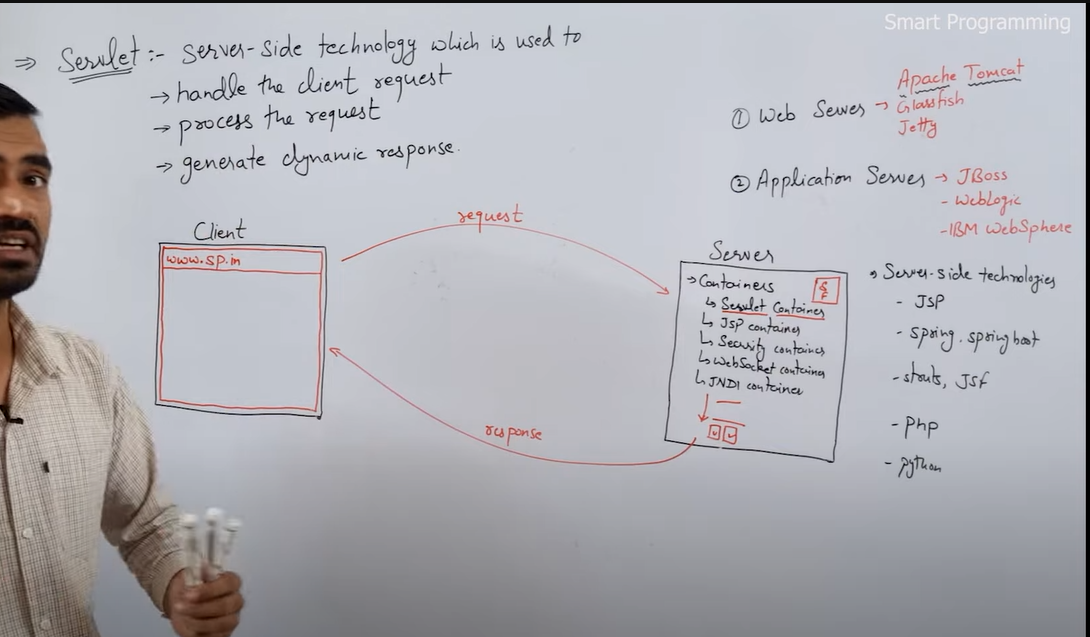 Smart Programming
⇒ Servlet :- server-side technology which is used to
→ handle the client request
→ process the request
→ generate dynamic response.
① Web Server → Apache Tomcat
Glassfish
Jetty
② Application Server → JBoss
- WebLogic
- IBM WebSphere
Client
www.sp.in
request
response
Server
→ Containers
↳ Servlet Container
↳ JSP container
↳ Security container
↳ WebSocket container
↳ JNDI container
Server-side technologies
- JSP
- Spring. springboot
- struts, JSF
- Php
- Python